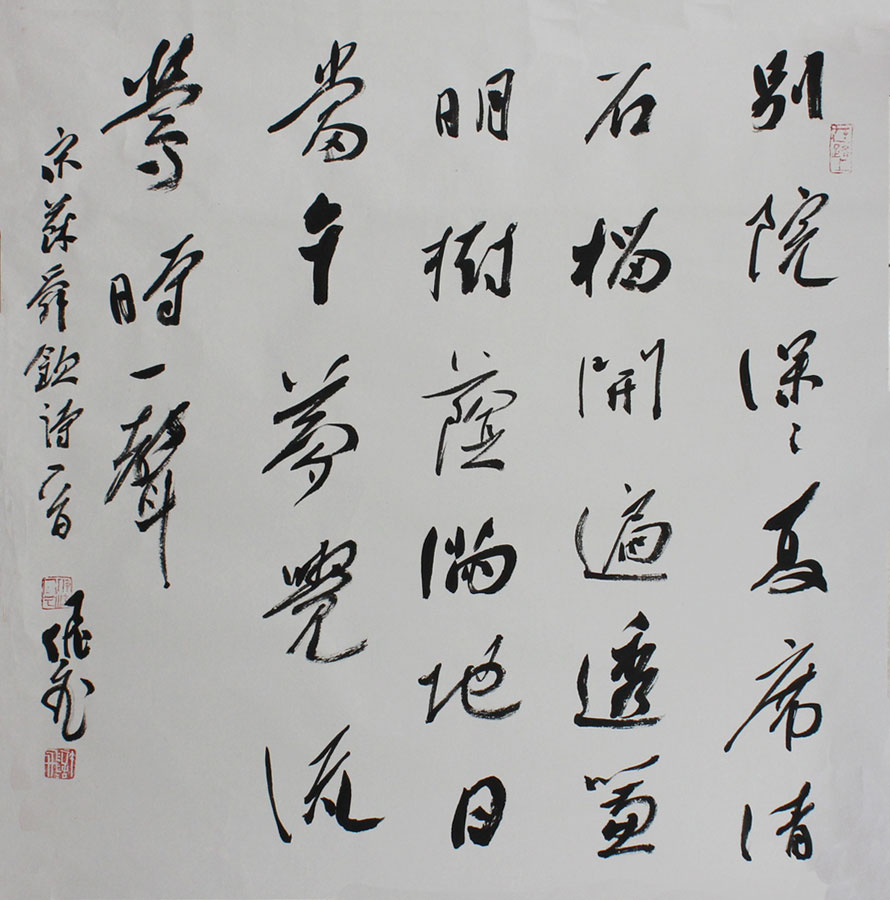 別院深〻夏席清
石榴開遍透簾
明樹蔭滿地日
當午夢覺流
鶯時一聲
宋蘇舜欽詩一首